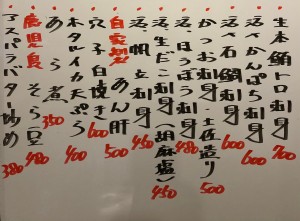 生本鮪トロ刺身 700
活〆かんぱち刺身 600
活〆石鯛刺身 600
かつお(刺身・土佐造り) 500
活ほうぼう刺身 480
活生だこ刺身(胡麻塩) 450
活帆立刺身 450
自家製あん肝 500
穴子白焼き 600
ホタルイカ天ぷら 400
あら煮 350
鹿児島そら豆 480
アスパラバター炒め 380